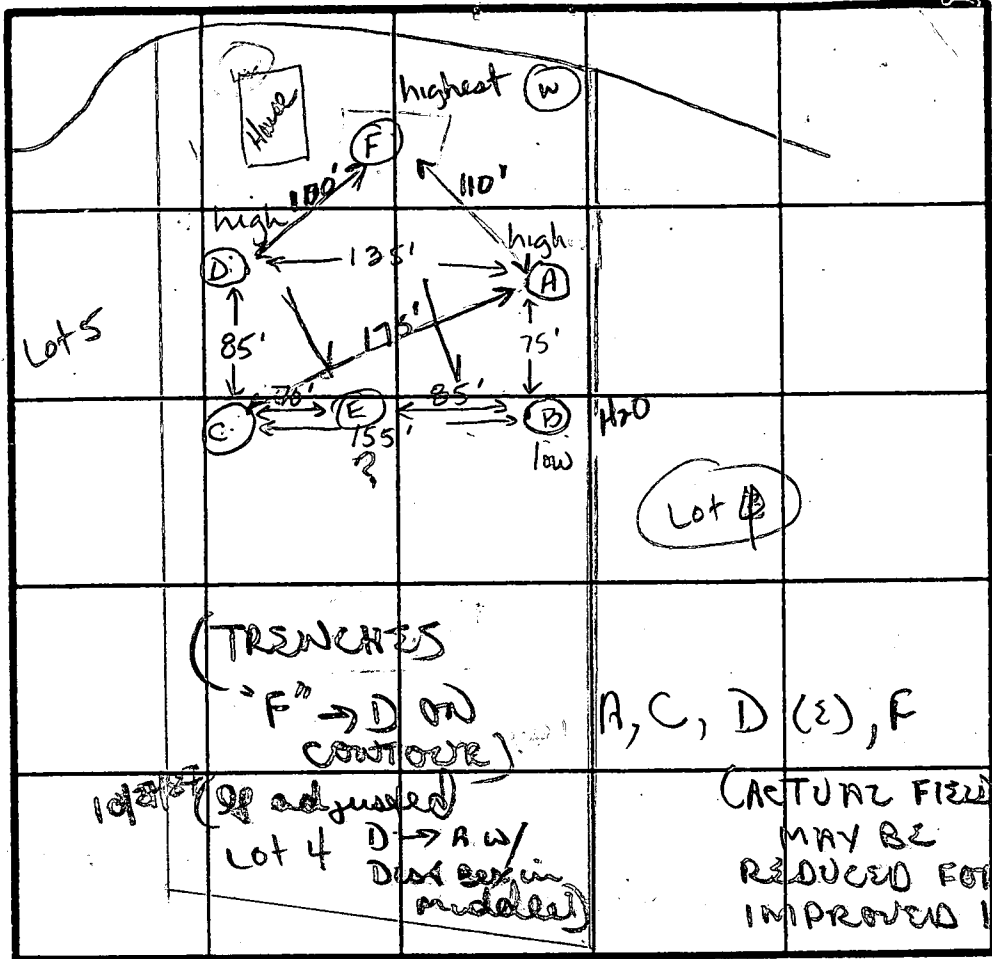 House
highest W
F
100' 110'
high high
D 135' A
Lot 5
85' 175' 75'
85'
C E B H2O
155' low
?
Lot 4
(TRENCHES
"F" → D ON
CONTOUR)
A, C, D (E), F
(If adjusted)
Lot 4 D → A w/
Dist box in
middle)
(ACTUAL FIELD
MAY BE
REDUCED FOR
IMPROVED